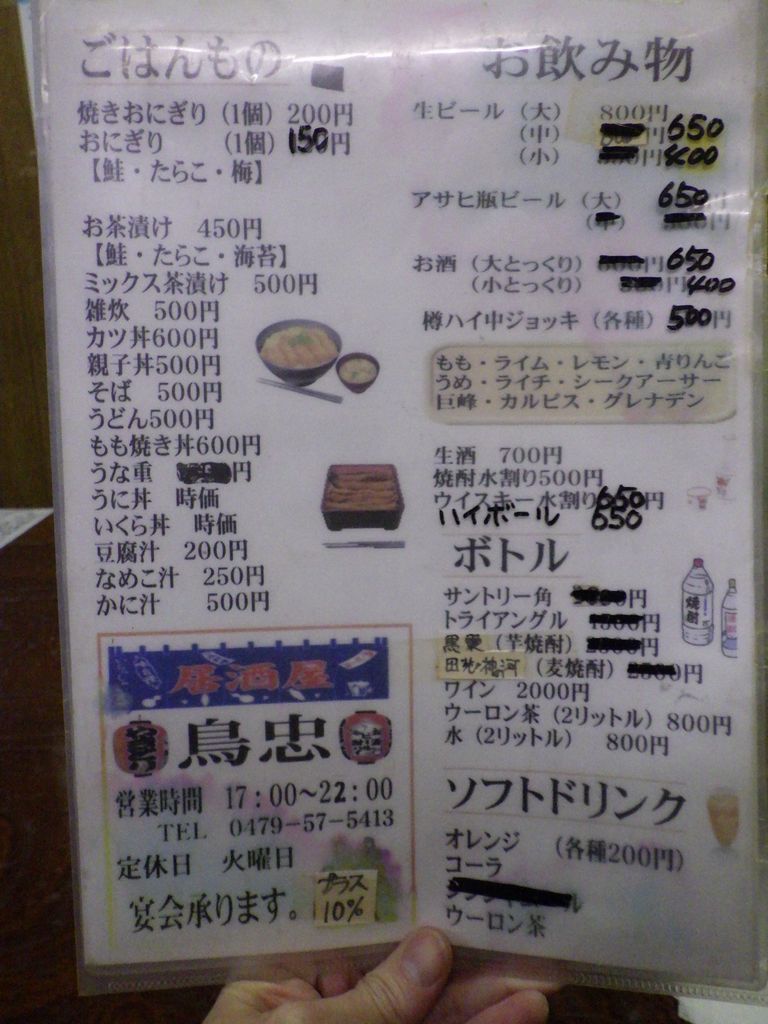 ごはんもの
焼きおにぎり（1個）200円
おにぎり （1個）150円
【鮭・たらこ・梅】
お茶漬け 450円
【鮭・たらこ・海苔】
ミックス茶漬け 500円
雑炊 500円
カツ丼600円
親子丼500円
そば 500円
うどん500円
もも焼き丼600円
うな重 円
うに丼 時価
いくら丼 時価
豆腐汁 200円
なめこ汁 250円
かに汁 500円
居酒屋
鳥忠
営業時間 17:00〜22:00
TEL 0479-57-5413
定休日 火曜日
宴会承ります。
プラス
10%
お飲み物
生ビール（大） 800円
（中） 円650
（小） 円400
アサヒ瓶ビール（大） 650
お酒（大とっくり） 円650
（小とっくり） 円400
樽ハイ中ジョッキ（各種）500円
もも・ライム・レモン・青りんご
うめ・ライチ・シークアーサー
巨峰・カルピス・グレナデン
生酒 700円
焼酎水割り500円
ウイスキー水割り650円
ハイボール 650
ボトル
サントリー角 円
トライアングル 円
（芋焼酎） 円
（麦焼酎） 円
ワイン 2000円
ウーロン茶（2リットル）800円
水（2リットル） 800円
焼酎
ソフトドリンク
オレンジ （各種200円）
コーラ
ウーロン茶